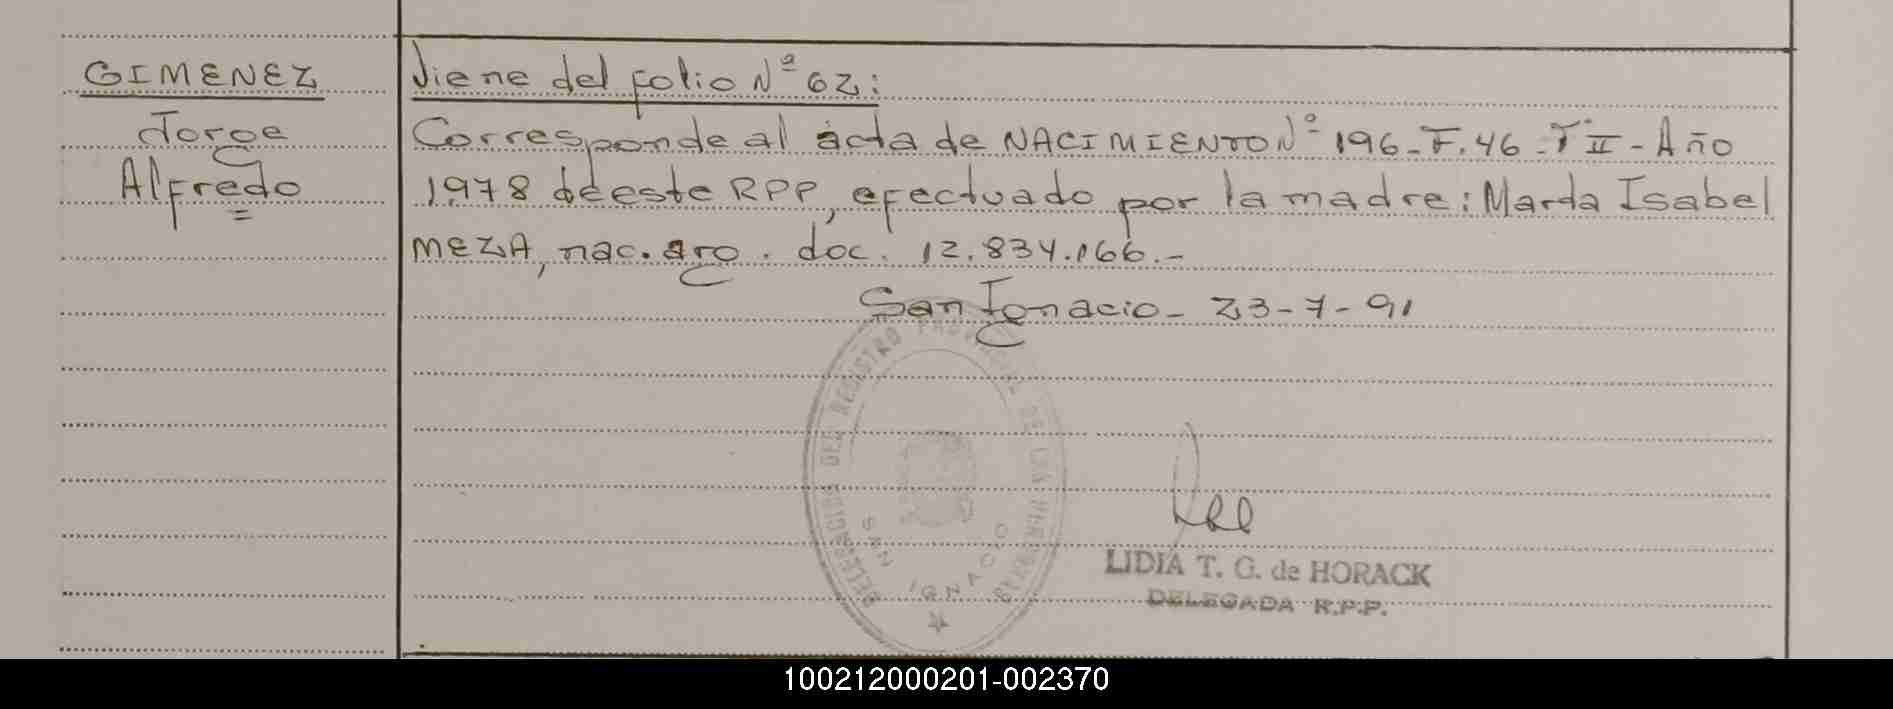 GIMENEZ
Jorge
Alfredo
Viene del folio Nº 62:
Corresponde al acta de NACIMIENTO Nº 196-F.46-T II-Año
1978 de este RPP, efectuado por la madre: Marta Isabel
MEZA, nac. arg. doc. 12.834.166.-
San Ignacio- 23-7-91
DELEGACION DEL REGISTRO PROVINCIAL DE LAS PERSONAS
SAN IGNACIO
LIDIA T. G. de HORACK
DELEGADA R.P.P.
100212000201-002370